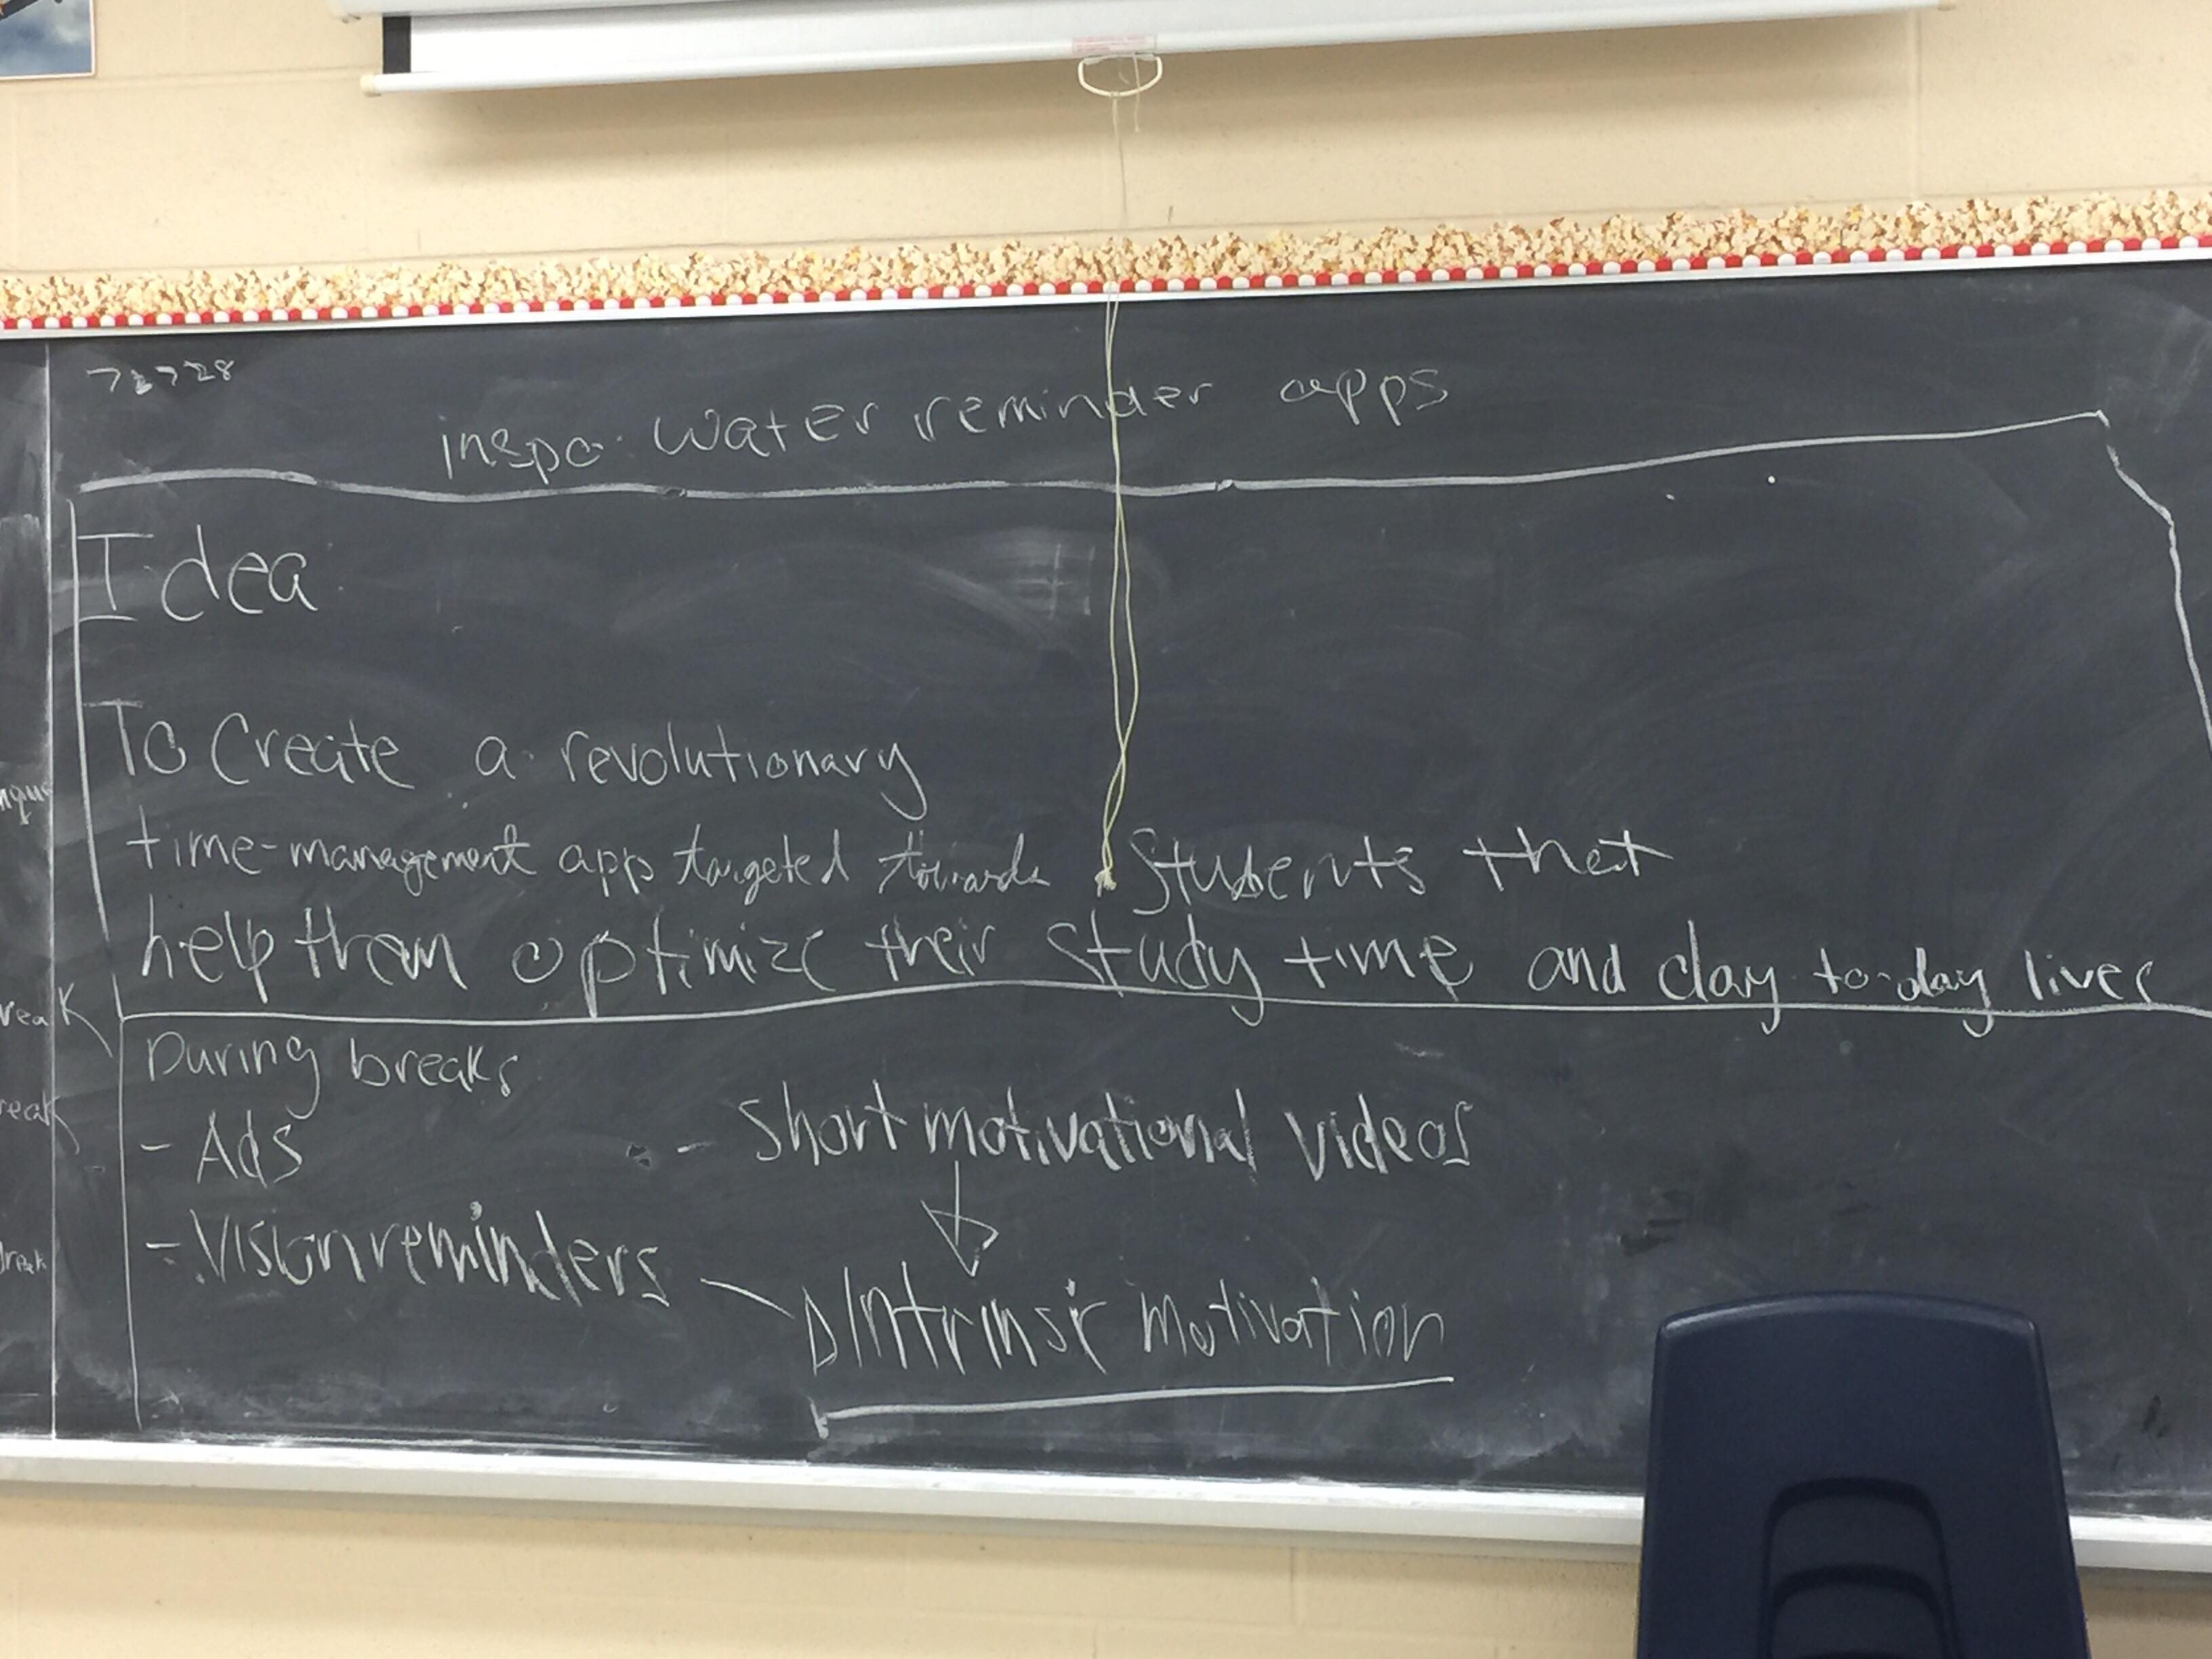 inspo. water reminder apps
Idea
To create a revolutionary
time-management app targeted towards students that
help them optimize their study time and day to-day lives
During breaks
- Ads
- Short motivational videos
- Vision reminders
Intrinsic motivation
reak
reak